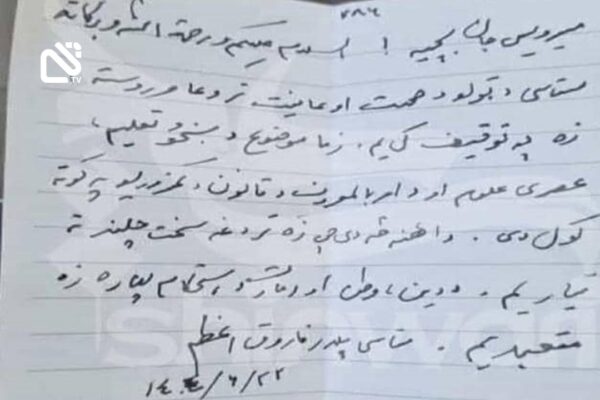 ۷۸۶
میرویس جان بچیه! السلام علیکم ورحمة الله وبرکاته
ستاسې د ټولو د صحت او عافیت تر دعا وروسته
زه په توقیف کې یم. زما موضوع د ښځو تعلیم،
عصري علوم او د امر بالمعروف د قانون د کمزوریو په ګوته
کول دي. دا هغه څه دي چې زه تر دغه سخت چلند ته
تیار یم. د دین، وطن او د استحکام لپاره زه
متعهد یم. ستاسې پلار فاروق اعظم
۱۴۰۴/۶/۲۲
TV